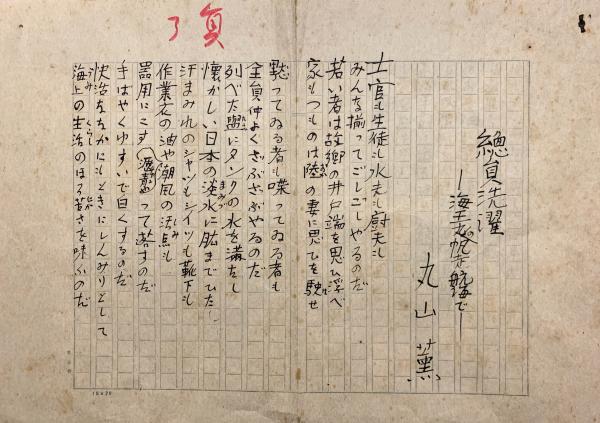 負
了
總員洗濯
―海王丸の帆走航海で―
丸山薫
士官も生徒も水夫も厨夫も
みんな揃ってごしごしやるのだ
若い者は故郷の井戸端を思ひ浮べ
家もつものは陸の妻に思ひを馳せ
黙ってゐる者も喋ってゐる者も
全員仲よくざぶざぶやるのだ
列べた盥にタンクの水を満たし
懐かしい日本の淡水に肱までひたし
汗まみれのシャツもシイツも靴下も
作業衣の油や潮風の汚点も
器用にこすって落すのだ
手ばやくゆすいで白くするのだ
快活なちかにもときにしんみりとして
海上の生活のほろ苦さを味ふのだ
10×20